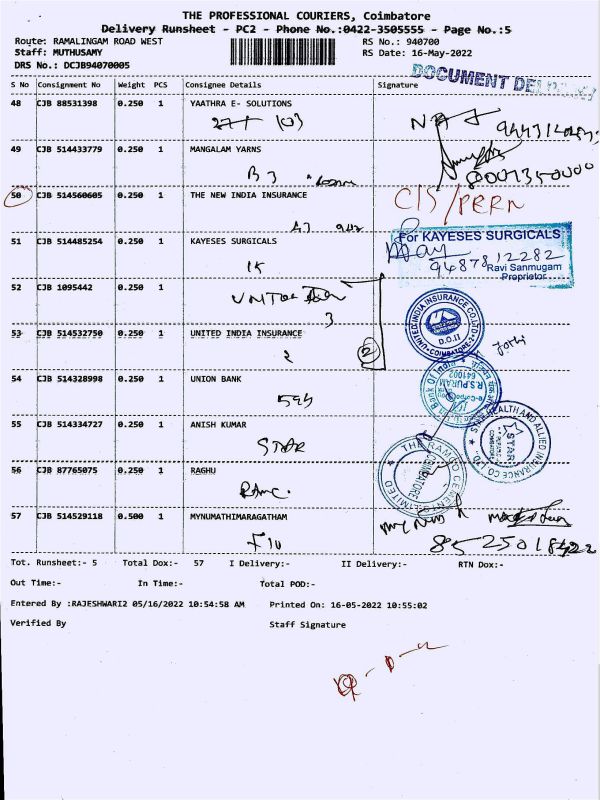 THE PROFESSIONAL COURIERS, Coimbatore
Delivery Runsheet - PC2 - Phone No.:0422-3505555 - Page No.:5
Route: RAMALINGAM ROAD WEST RS No.: 940700
Staff: MUTHUSAMY RS Date: 16-May-2022
DRS No.: DCJB94070005
DOCUMENT DELIVERY
S No Consignment No Weight PCS Consignee Details Signature
48 CJB 88531398 0.250 1 YAATHRA E- SOLUTIONS
49 CJB 514433779 0.250 1 MANGALAM YARNS
8007350000
50 CJB 514560605 0.250 1 THE NEW INDIA INSURANCE
CIS/PERN
51 CJB 514485254 0.250 1 KAYESES SURGICALS
For KAYESES SURGICALS
9487812282
Ravi Sanmugam
Proprietor
52 CJB 1095442 0.250 1
3
UNITED INDIA INSURANCE CO LTD
D.O.II
COIMBATORE-2
53 CJB 514532750 0.250 1 UNITED INDIA INSURANCE
2 2
54 CJB 514328998 0.250 1 UNION BANK
R.S.PURAM
641002
55 CJB 514334727 0.250 1 ANISH KUMAR
STAR
STAR HEALTH AND ALLIED INSURANCE CO LTD
STAR
56 CJB 87765075 0.250 1 RAGHU
THE RAMCO CEMENTS LIMITED
COIMBATORE
57 CJB 514529118 0.500 1 MYNUMATHIMARAGATHAM
Tot. Runsheet:- 5 Total Dox:- 57 I Delivery:- II Delivery:- RTN Dox:-
Out Time:- In Time:- Total POD:-
Entered By :RAJESHWARI2 05/16/2022 10:54:58 AM Printed On: 16-05-2022 10:55:02
Verified By Staff Signature